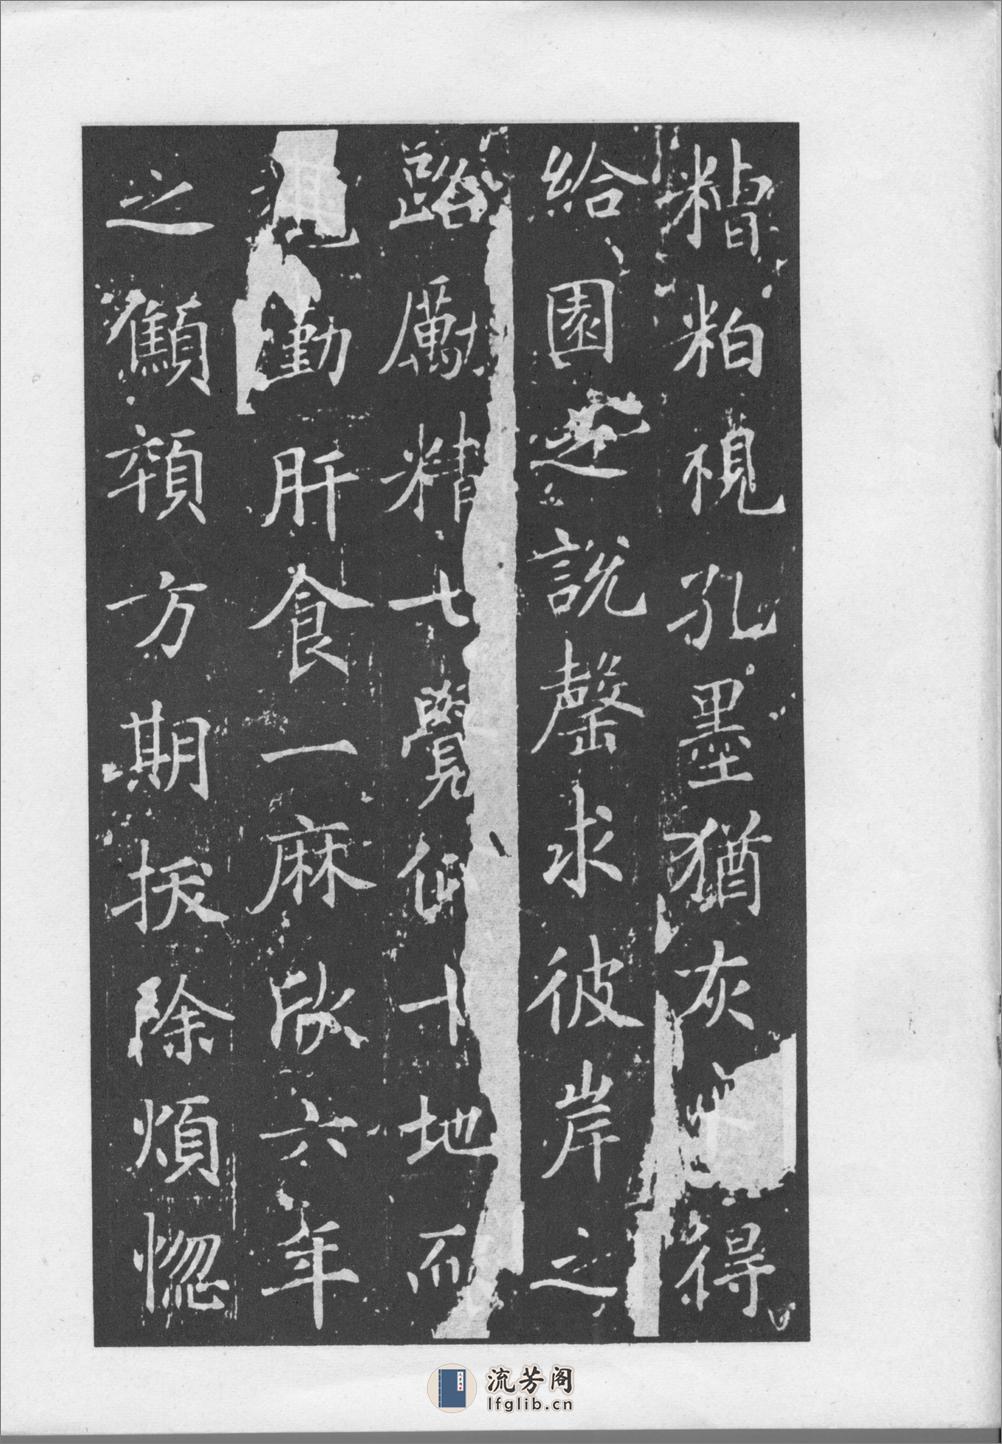 糟粕視孔墨猶灰得
給園之說罄求彼岸之
路厲精七覺仰十地而
勤肝食一麻欣六年
之顦顇方期拔除煩惚
流芳阁
lfglib.cn